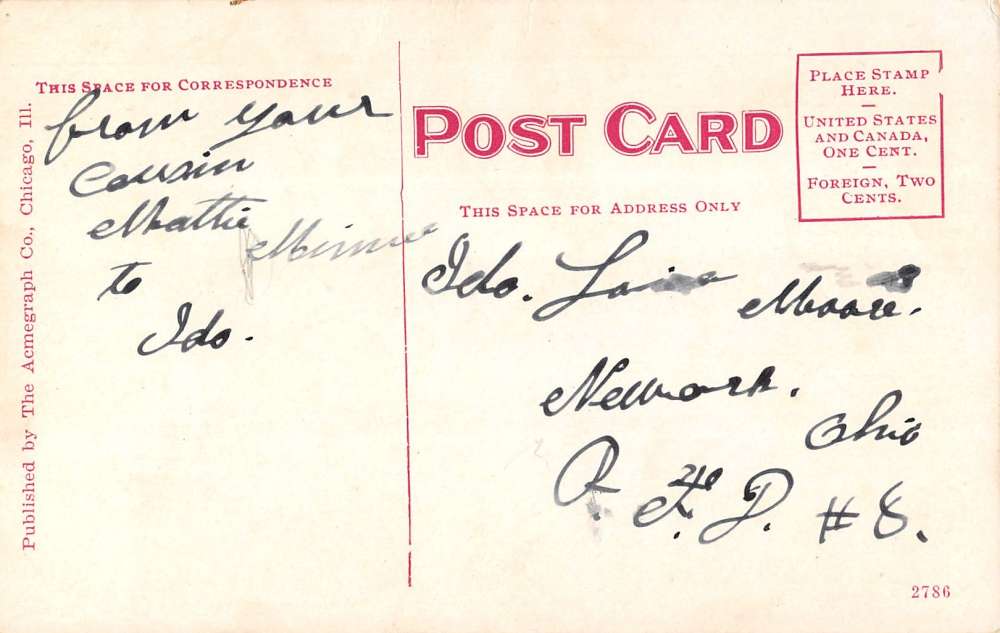 THIS SPACE FOR CORRESPONDENCE
from your
cousin
Mattie
Minnie
to
Ida.
Published by The Acmegraph Co., Chicago, Ill.
POST CARD
PLACE STAMP
HERE.
UNITED STATES
AND CANADA,
ONE CENT.
FOREIGN, TWO
CENTS.
THIS SPACE FOR ADDRESS ONLY
Ida. Moore.
Newark.
Ohio
R. F. D. #8.
2786